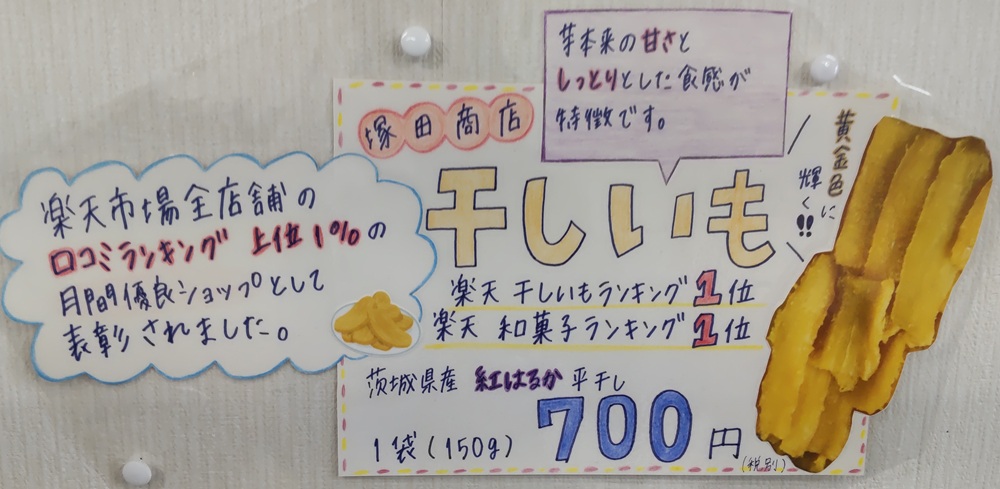 芋本来の甘さと
しっとりとした食感が
特徴です。
塚田商店
干しいも
黄金色に
輝く!!
楽天市場全店舗の
口コミランキング 上位1%の
月間優良ショップとして
表彰されました。
楽天 干しいもランキング1位
楽天 和菓子ランキング1位
茨城県産 紅はるか 平干し
1袋(150g) 700円
(税別)